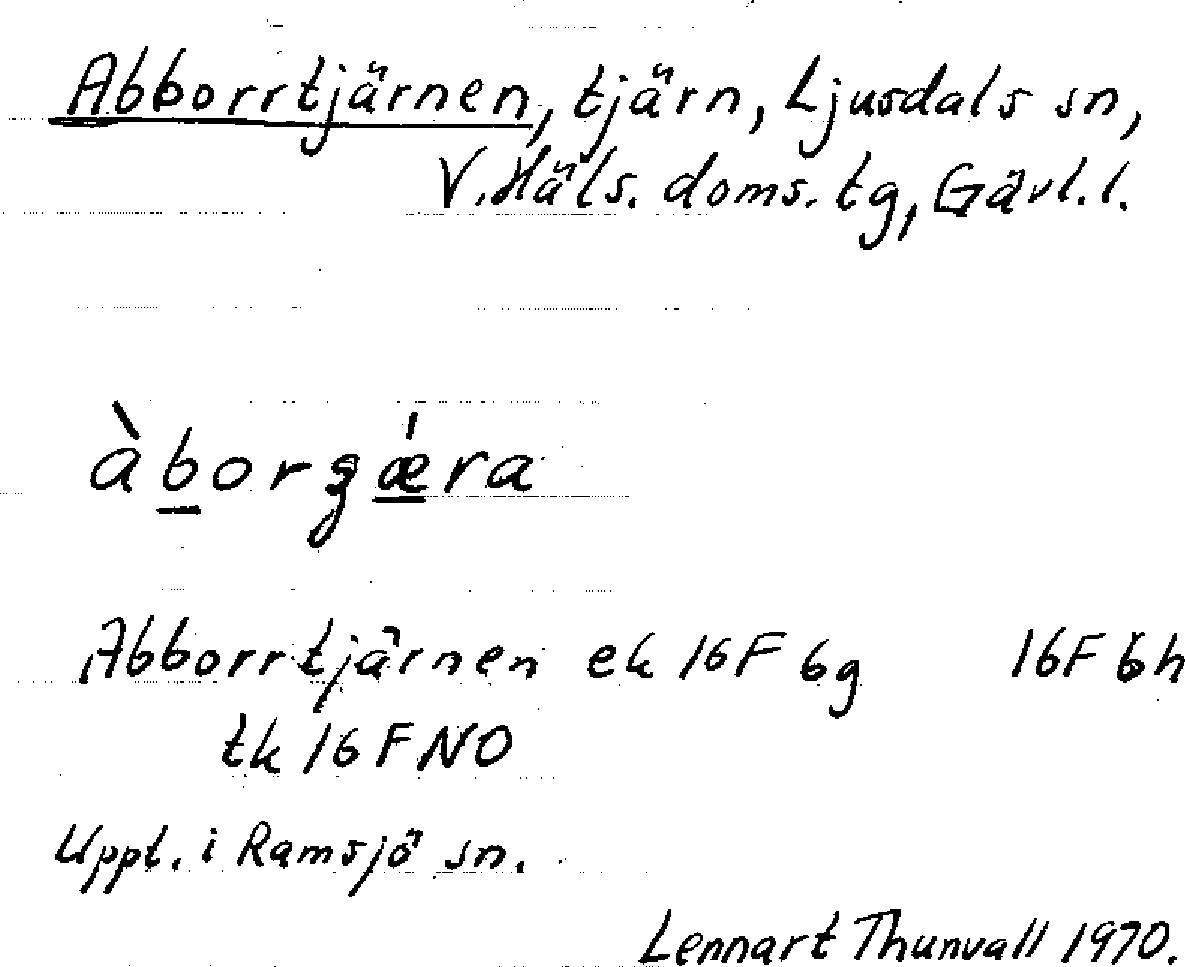 Abborrtjärnen, tjärn, Ljusdals sn,
V. Häls. doms. tg, Gävl. l.
àborʒǽra
Abborrtjärnen ek 16F 6g 16F 6h
tk 16F NO
Uppt. i Ramsjö sn.
Lennart Thunvall 1970.